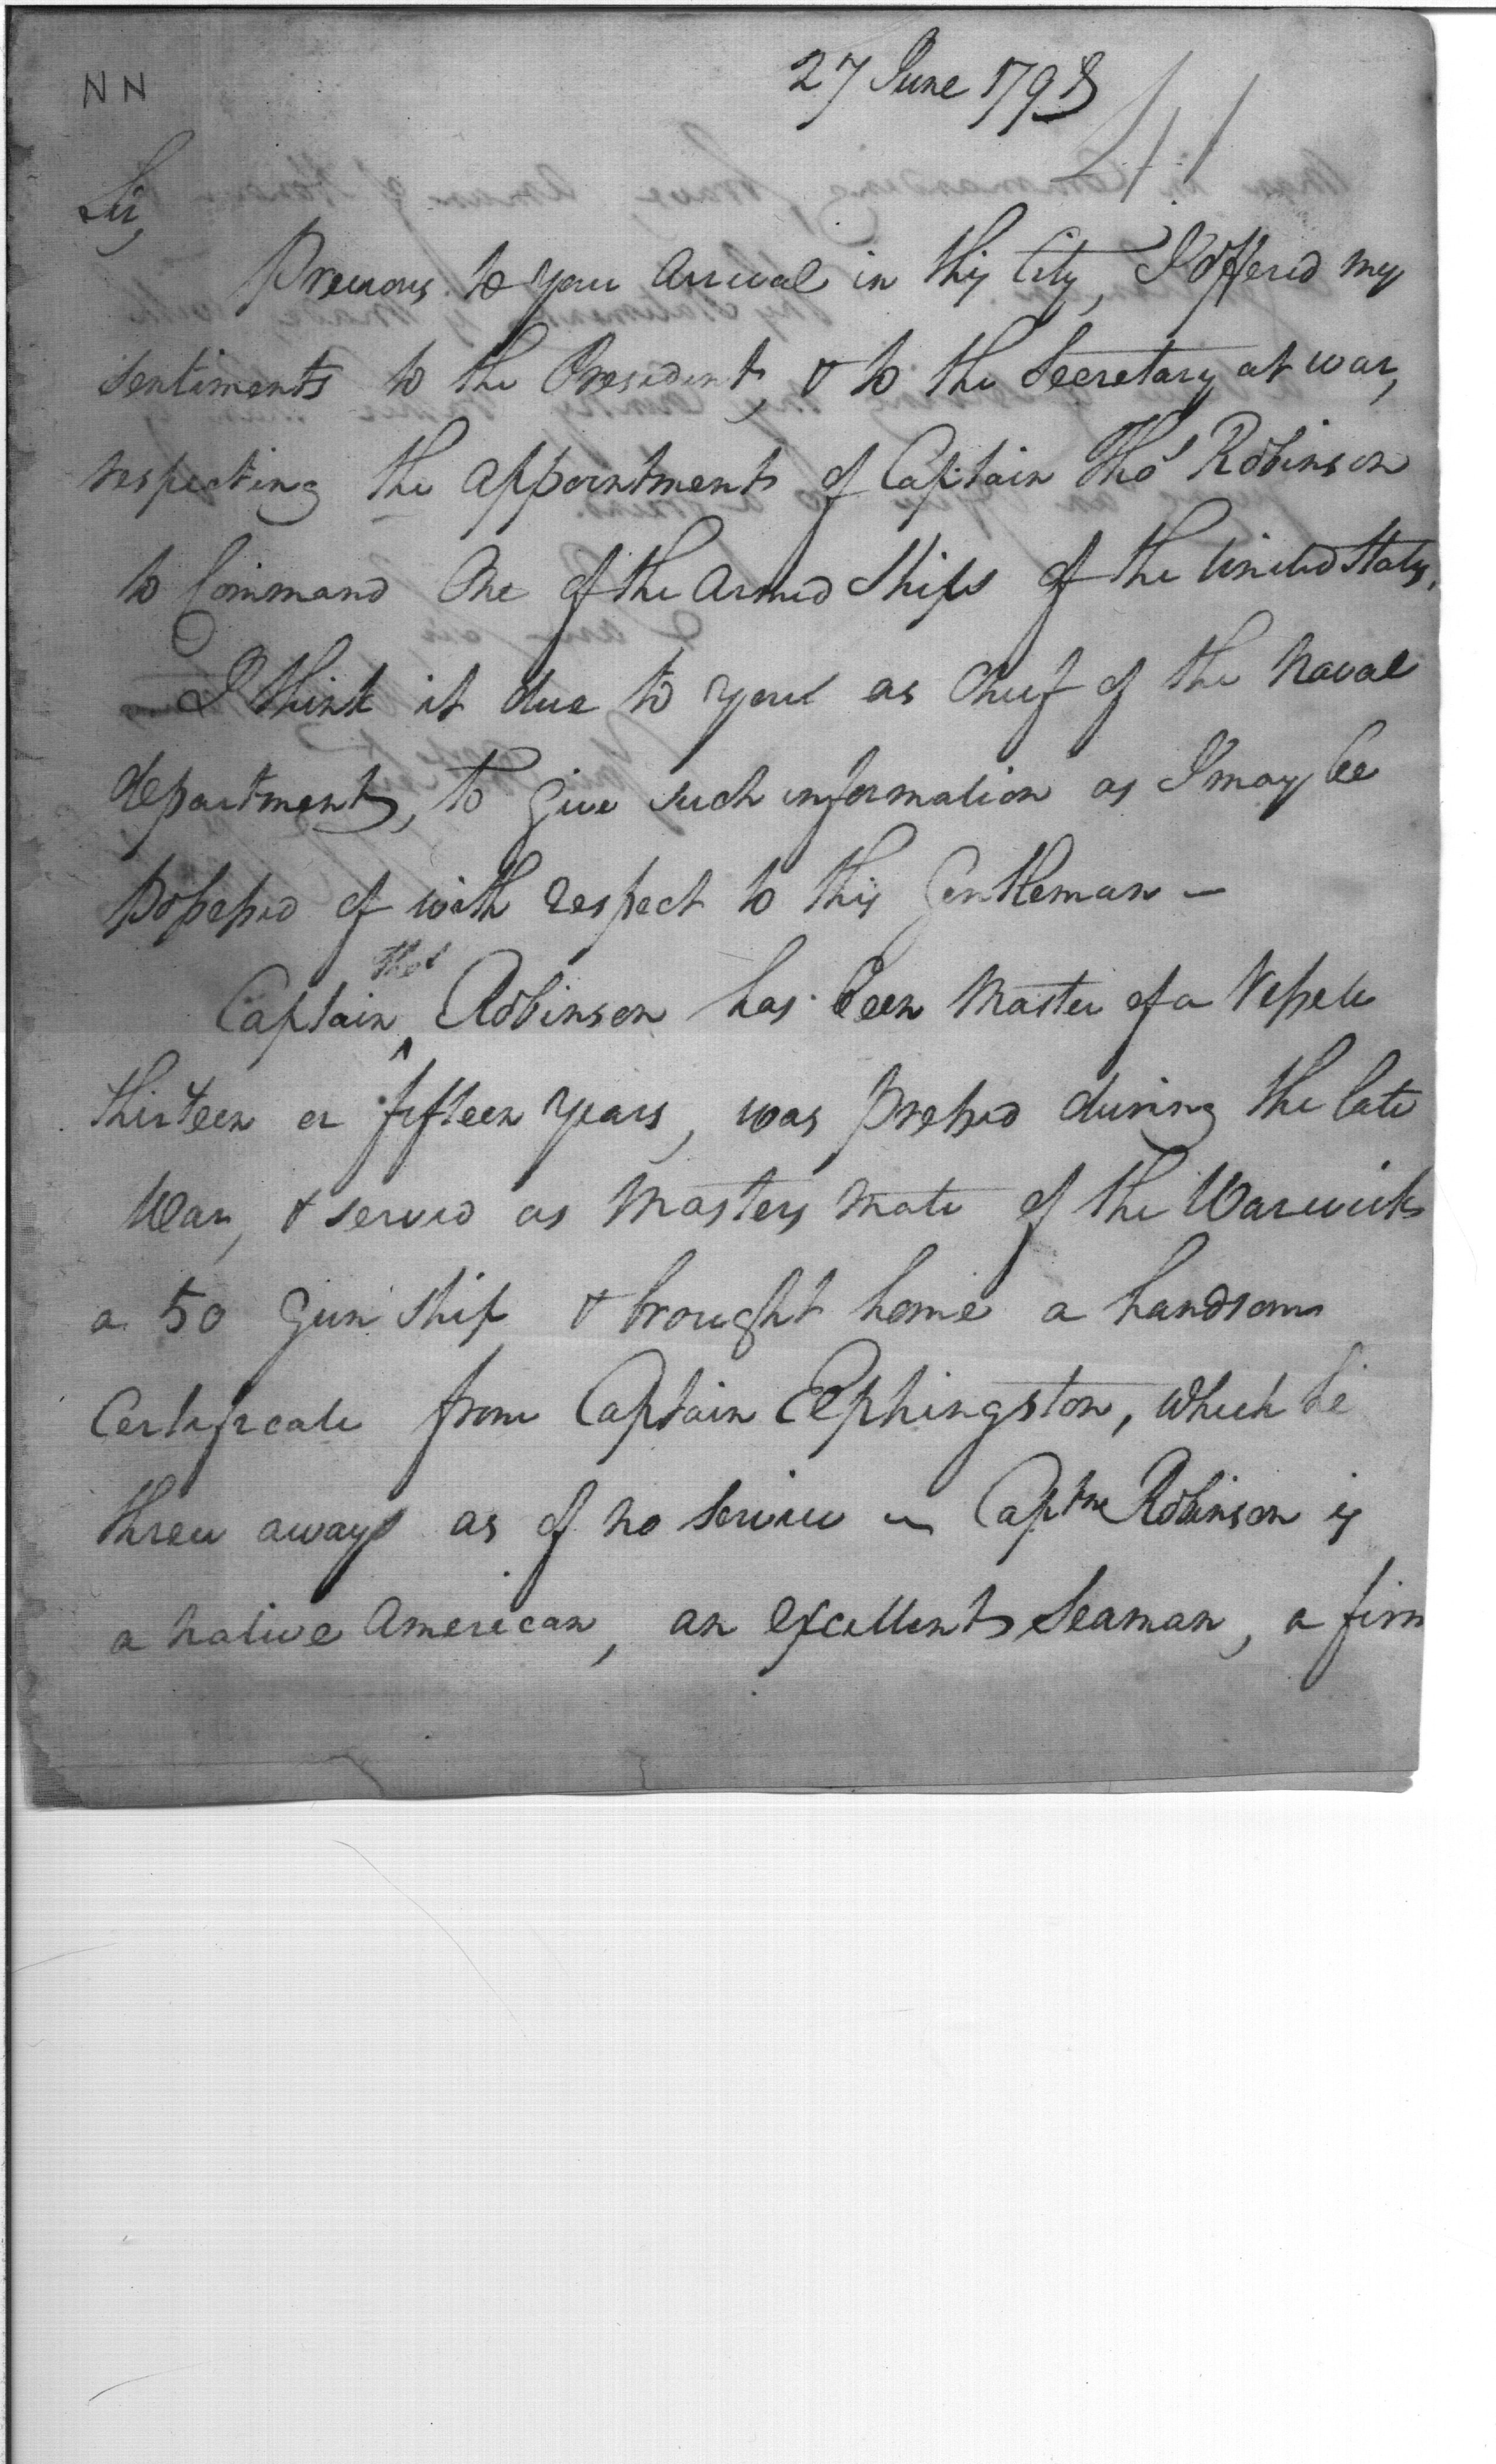 NN
27 June 1798
41
Sir,
Previous to your Arrival in this City, I offered my
sentiments to the President, & to the Secretary at war,
respecting the appointment of Captain Thos Robinson
to Command One of the Armed Ships of the United States,
— I think it due to you as Chief of the Naval
department, to give such information as I may be
possessed of with respect to this Gentleman —
Captain ^Thos Robinson has been Master of a Vessele
thirteen or fifteen years, was pressed during the late
War, & served as Masters Mate of the Warwick
a 50 Gun Ship & brought home a handsome
Certificate from Captain Elphingston, which he
threw away as of no service — Captne Robinson is
a native American, an excellent Seaman, a firm